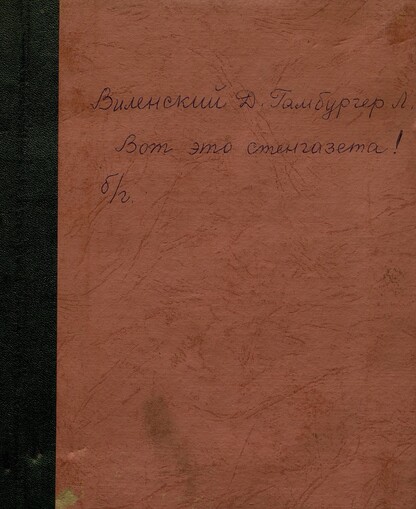 Виленский Д. Гамбургер Л
Вот это стенгазета!
б/г.